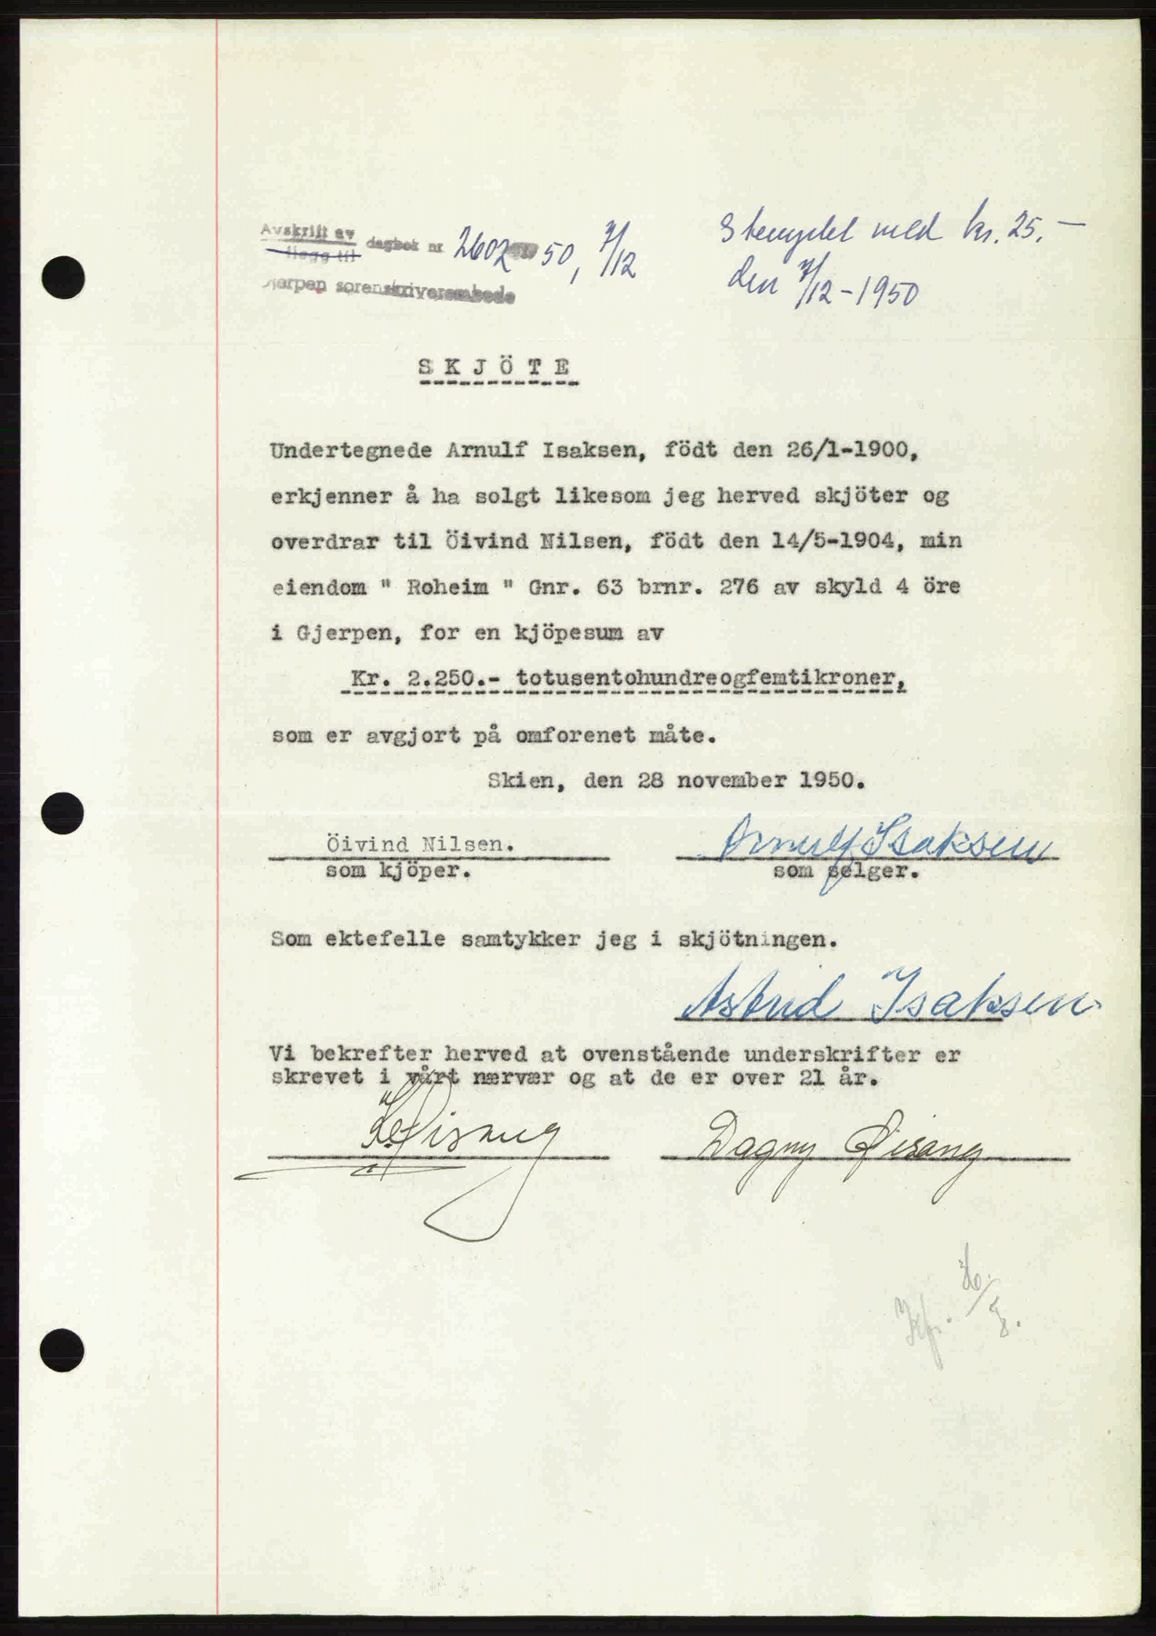 Avskrift av dagbok nr 2602 50, 7/12
ilegg til
Gjerpen sorenskriverembede
Stemplet med kr. 25.-
den 7/12-1950
SKJÖTE
Undertegnede Arnulf Isaksen, födt den 26/1-1900,
erkjenner å ha solgt likesom jeg herved skjöter og
overdrar til Öivind Nilsen, födt den 14/5-1904, min
eiendom " Roheim " Gnr. 63 brnr. 276 av skyld 4 öre
i Gjerpen, for en kjöpesum av
Kr. 2.250.- totusentohundreogfemtikroner,
som er avgjort på omforenet måte.
Skien, den 28 november 1950.
Öivind Nilsen. Arnulf Isaksen
som kjöper. som selger.
Som ektefelle samtykker jeg i skjötningen.
Astrid Isaksen
Vi bekrefter herved at ovenstående underskrifter er
skrevet i vårt nærvær og at de er over 21 år.
Dagny Øisang